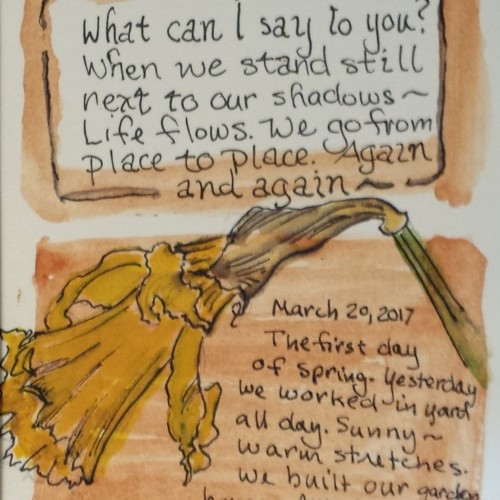 What can I say to you?
When we stand still
next to our shadows ~
Life flows. We go from
place to place. Again
and again ~
March 20, 2017
The first day
of spring. Yesterday
we worked in yard
all day. Sunny ~
warm stretches.
We built our garden